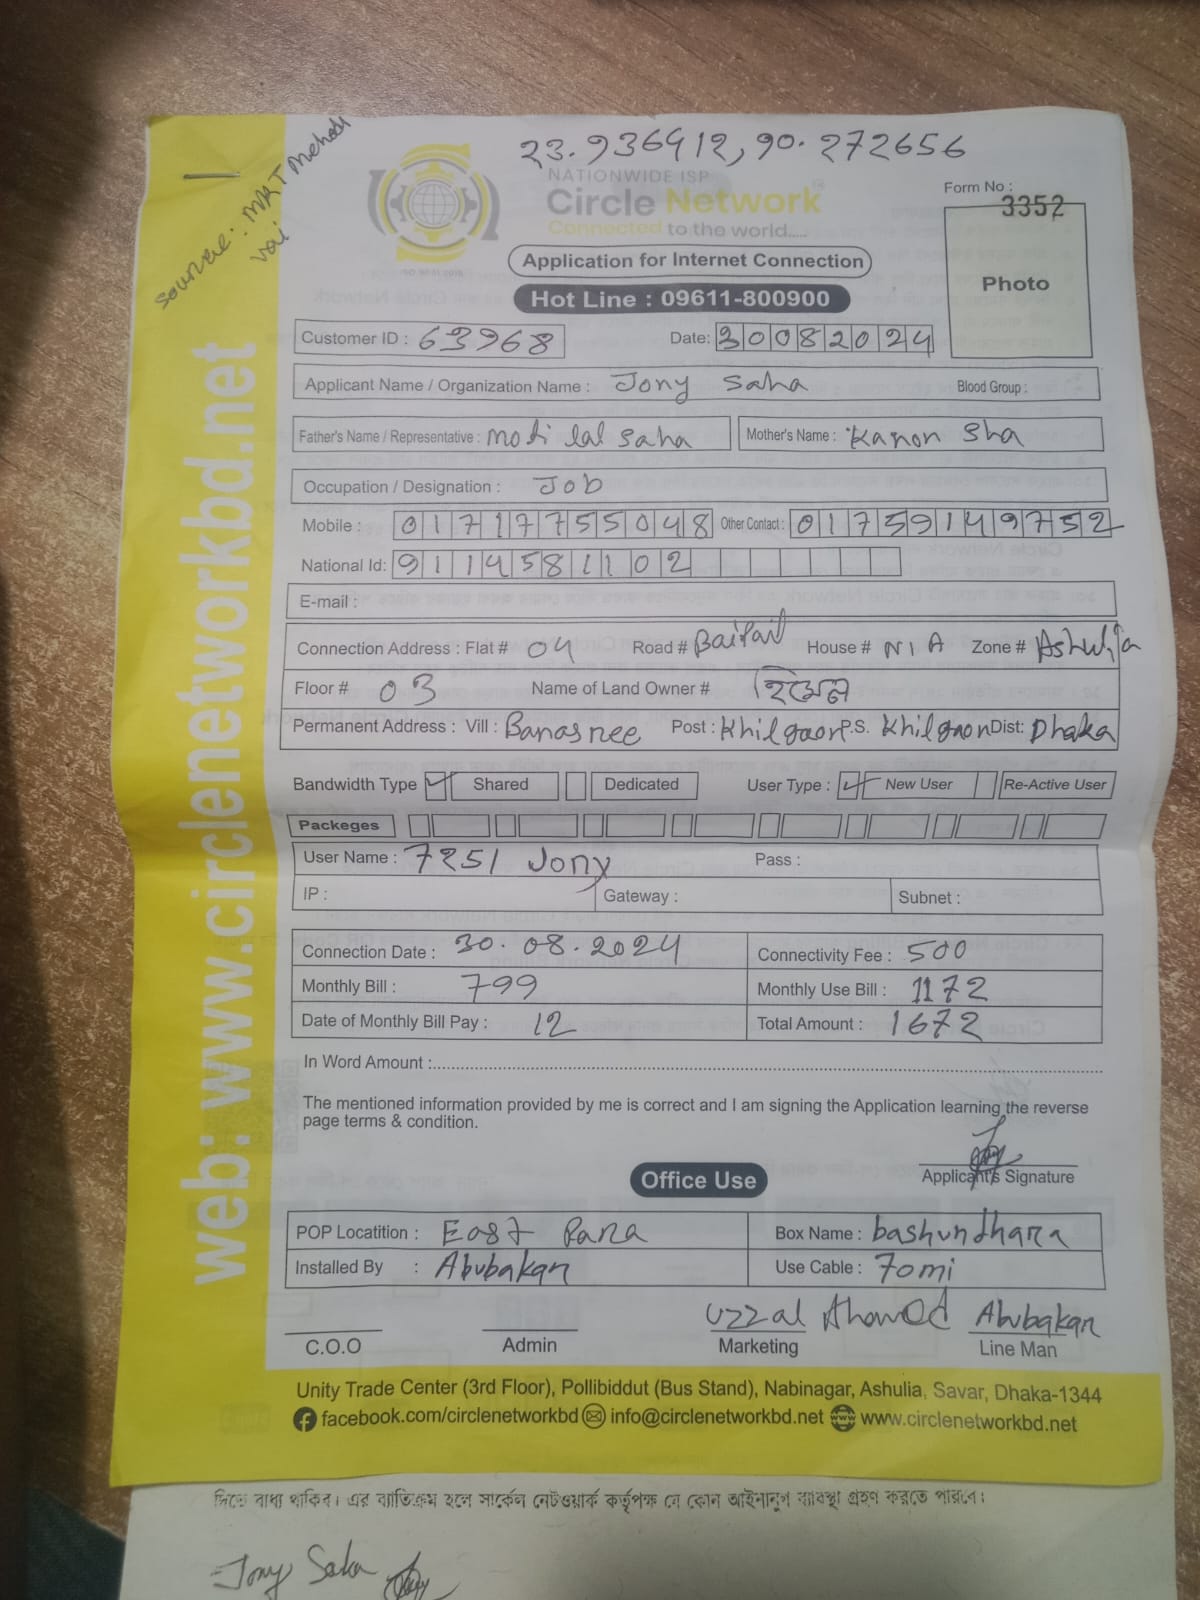 23.936912, 90.272656
source: MKT Mehedi
vai
NATIONWIDE ISP
Circle Network
Connected to the world.....
Form No :
3352
Photo
Application for Internet Connection
Hot Line : 09611-800900
Customer ID : 63968 Date: 30082024
Applicant Name / Organization Name : Jony Saha Blood Group :
Father's Name / Representative : moti lal saha Mother's Name : Kanon Sha
Occupation / Designation : Job
Mobile : 01717755048 Other Contact : 01759149752
National Id: 9114581102
E-mail :
Connection Address : Flat # 04 Road # Baipail House # N/A Zone # Ashulia
Floor # 03 Name of Land Owner # হিমেল
Permanent Address : Vill : Banasree Post : Khilgaon P.S. Khilgaon Dist: Dhaka
Bandwidth Type Shared Dedicated User Type : New User Re-Active User
Packeges
User Name : 7251 Jony Pass :
IP : Gateway : Subnet :
Connection Date : 30.08.2024 Connectivity Fee : 500
Monthly Bill : 799 Monthly Use Bill : 1172
Date of Monthly Bill Pay : 12 Total Amount : 1672
In Word Amount :
The mentioned information provided by me is correct and I am signing the Application learning the reverse
page terms & condition.
Applicant's Signature
Office Use
POP Locatition : East Para Box Name : bashundhara
Installed By : Abubakar Use Cable : 70mi
Uzzal Ahamed Abubakar
C.O.O Admin Marketing Line Man
Unity Trade Center (3rd Floor), Pollibiddut (Bus Stand), Nabinagar, Ashulia, Savar, Dhaka-1344
facebook.com/circlenetworkbd info@circlenetworkbd.net www.circlenetworkbd.net
web: www.circlenetworkbd.net
দিতে বাধ্য থাকিব। এর ব্যতিক্রম হলে সার্কেল নেটওয়ার্ক কর্তৃপক্ষ যে কোন আইনানুগ ব্যাবস্থা গ্রহণ করতে পারবে।
Jony Saha